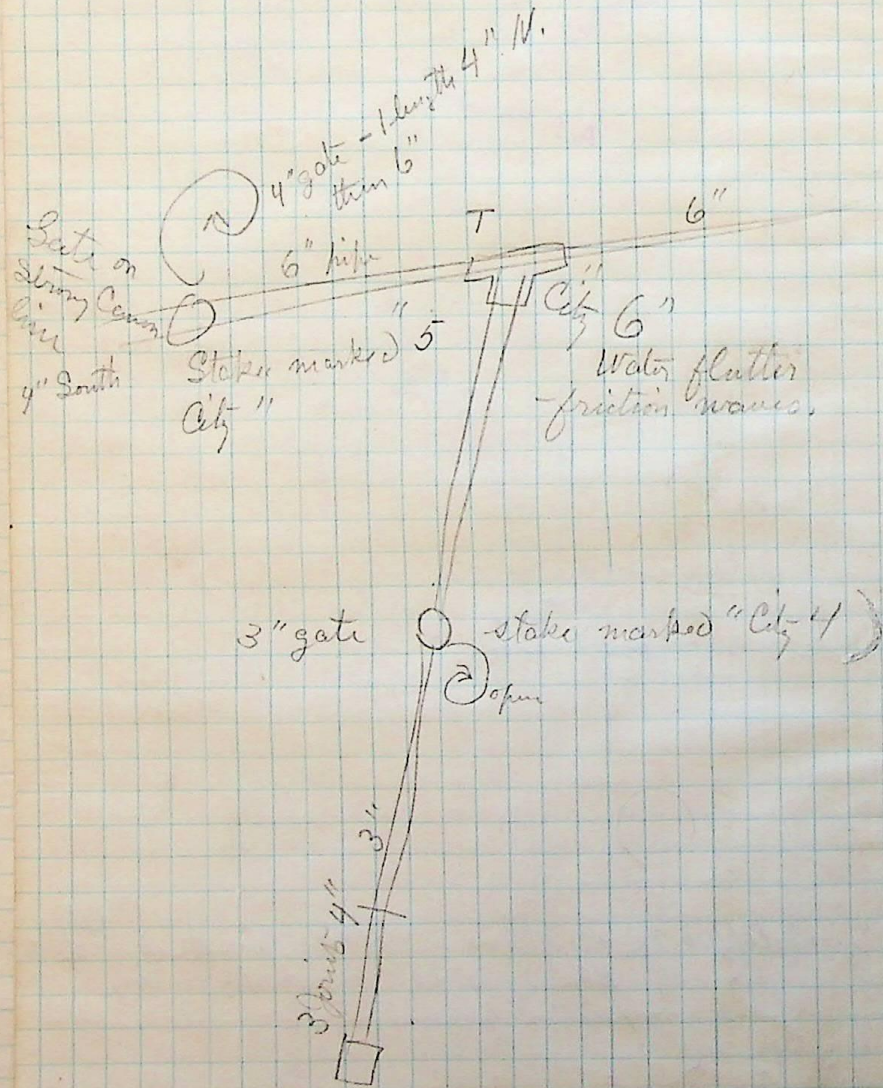 4" gate - 1 length 4" N.
then 6"
T
6"
6" pipe
Gate on
Strong Canon
line
4" South
Stake marked "5
City"
City 6"
Water flutter
-friction waves.
3" gate
stake marked "City 4
open
3"
3 Joints 4"